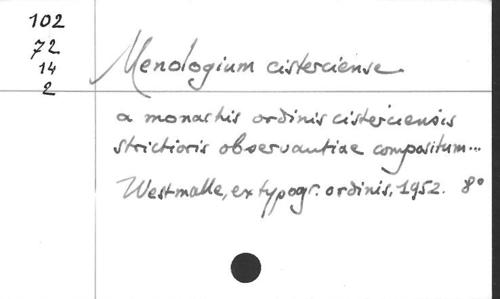 102
72
14
2
Menologium cisterciense
a monachis ordinis cisterciensis
strictioris observantiae compositum...
Westmalle, ex typogr. ordinis, 1952. 8°